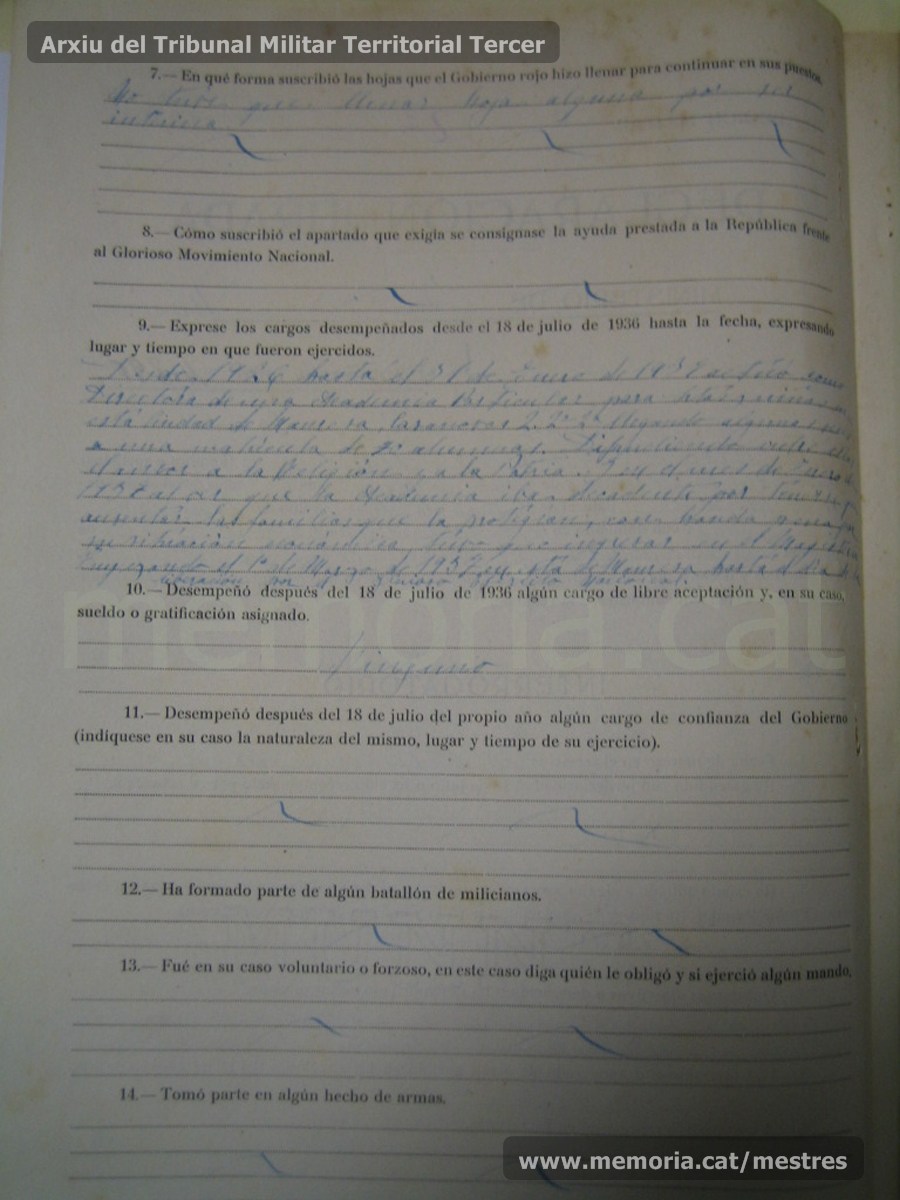 Arxiu del Tribunal Militar Territorial Tercer
7.— En qué forma suscribió las hojas que el Gobierno rojo hizo llenar para continuar en sus puestos.
No tuve que llenar hoja alguna por ser
interina
8.— Cómo suscribió el apartado que exigía se consígnase la ayuda prestada a la República frente
al Glorioso Movimiento Nacional.
9.— Exprese los cargos desempeñados desde el 18 de julio de 1936 hasta la fecha, expresando
lugar y tiempo en que fueron ejercidos.
Desde 1926 hasta el 31 de Enero de 1938 actuó como
Directora de una Academia Particular para niñas
está ciudad de Manresa, 2. 2º 2ª llegando
a una matrícula de alumnas.
el amor a la Religión y a la Patria. en el mes de Enero
1938 al ver que la Academia iba decadente por
ausentar las familias que la protegían, con honda pena
su situación económica, tuvo que ingresar en el
Empezando el 1º de Marzo de 1938 en esta de Manresa hasta el día
liberación por el Glorioso Ejército Nacional.
10.— Desempeñó después del 18 de julio de 1936 algún cargo de libre aceptación y, en su caso,
sueldo o gratificación asignado.
memoria.cat
Ninguno
11.— Desempeñó después del 18 de julio del propio año algún cargo de confianza del Gobierno
(indíquese en su caso la naturaleza del mismo, lugar y tiempo de su ejercicio).
12.— Ha formado parte de algún batallón de milicianos.
13.— Fué en su caso voluntario o forzoso, en este caso diga quién le obligó y si ejerció algún mando.
14.— Tomó parte en algún hecho de armas.
www.memoria.cat/mestres